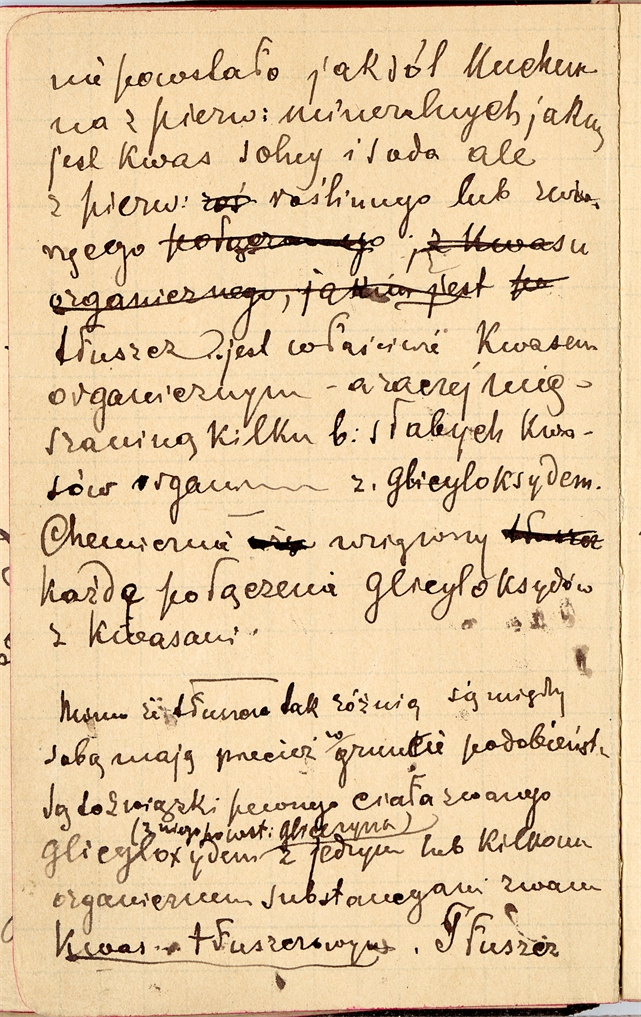 nie powstało jak sól Kuchen
na z pierw: mineralnych jakim
jest Kwas solny i soda ale
z pierw: roślinnego lub zwie-
rzęcego połączonego, z Kwasu
organicznego, jakim jest
tłuszcz. jest właściwie Kwasem
organicznym - a raczej mię-
szaniną kilku b: słabych Kwa-
sów organ z. Glicyloksydem.
Chemicznie wzięwszy
każde połączenie Glicyloksydów
z Kwasami
Mimo że tłuszcze tak różnią się między
sobą mają przecież w gruncie podobieńst.
Są to związki pewnego ciała zwanego
(z niego powst: Gliceryna)
Glicyloxydem z jednym lub Kilkoma
organicznem substancyami zwam
Kwas. tłuszczowym. Tłuszcz